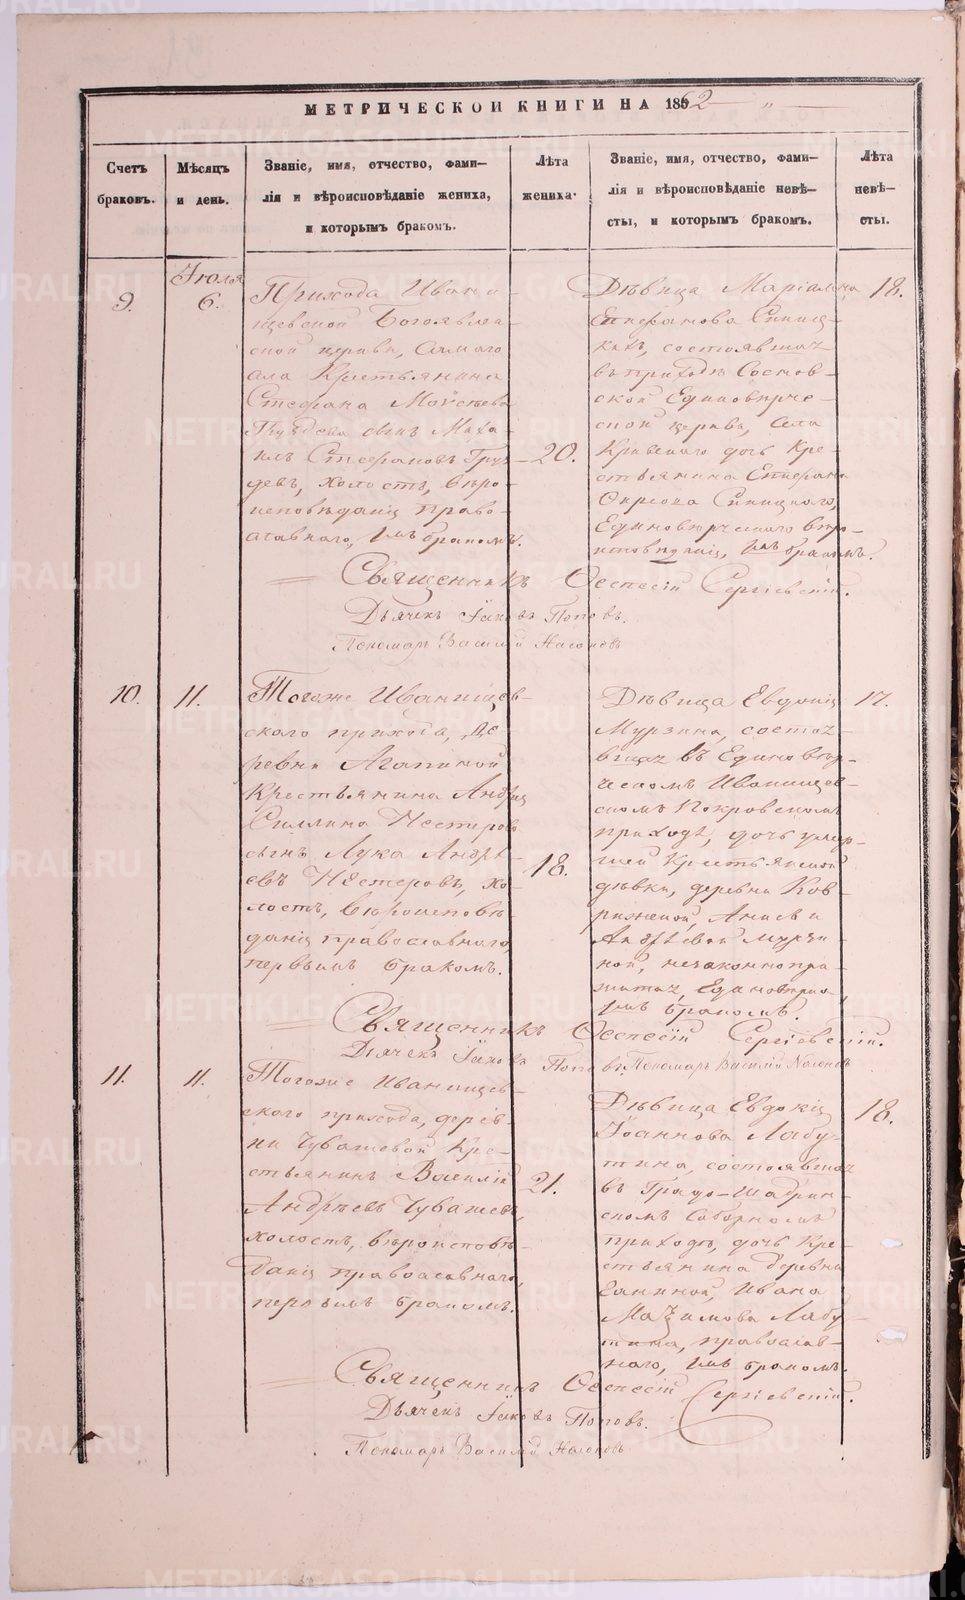 МЕТРИЧЕСКОЙ КНИГИ НА 1862
Счетъ
браковъ.
Мѣсяцъ
и день.
Званіе, имя, отчество, фами-
лія и вѣроисповѣданіе жениха,
и которымъ бракомъ.
Лѣта
жениха.
Званіе, имя, отчество, фами-
лія и вѣроисповѣданіе невѣ-
сты, и которымъ бракомъ.
Лѣта
невѣ-
сты.
9.
Іюля
6.
Прихода Ивани
щевской Богоявлен-
ской церкви, самаго
села Крестьянина
Стефана Моѵсеева
Груздева сынъ Миха-
илъ Стефановъ Груз-
девъ, холостъ, вѣро-
исповѣданія право-
славнаго, 1мъ бракомъ.
20.
Дѣвица Маріамна
Епифанова Синиц-
кихъ, состоявшая
въ приходѣ Соснов-
ской Единовѣрче-
ской церкви, села
дочь Кре-
стьянина Епифана
Синицкаго,
Единовѣрческаго вѣро-
исповѣданія, 1мъ бракомъ.
18.
Священникъ Ѳеспесій Сергіевскій.
Дьячекъ Іаковъ Поповъ.
Пономарь Василій Насоновъ
10.
11.
Тогоже Иванищев-
скаго прихода, де-
ревни Агапиной
Крестьянина Андрея
Силлина Нестерова
сынъ Лука Андре-
евъ Нестеровъ, хо-
лостъ, вѣроисповѣ-
данія православнаго,
первымъ бракомъ.
18.
Дѣвица Евдокія
Мурзина, состоя-
вшая въ Единовѣр-
ческомъ Иванищев-
скомъ Покровскомъ
приходѣ, дочь умер-
шей Крестьянской
дѣвки, деревни Ков-
рижской, Анисьи
Андреевой Мурзи-
ной, незаконнопри-
житая, Единовѣрка,
1мъ бракомъ.
17.
Священникъ Ѳеспесій Сергіевскій.
Дьячекъ Іаковъ Поповъ. Пономарь Василій Насоновъ
11.
11.
Тогоже Иванищев-
скаго прихода, дерев-
ни Чувашевой Кре-
стьянинъ Василій
Андреевъ Чувашевъ,
холостъ, вѣроисповѣ-
данія православнаго,
первымъ бракомъ.
21.
Дѣвица Евдокія
Іоаннова Лабу-
тина, состоявшая
въ Градо-Шадрин-
скомъ Соборномъ
приходѣ, дочь Кре-
стьянина деревни
Ивана
Максимова Лабу-
тина, православ-
наго, 1мъ бракомъ.
18.
Священникъ Ѳеспесій Сергіевскій.
Дьячекъ Іаковъ Поповъ.
Пономарь Василій Насоновъ
METRIKI.GASO-URAL.RU